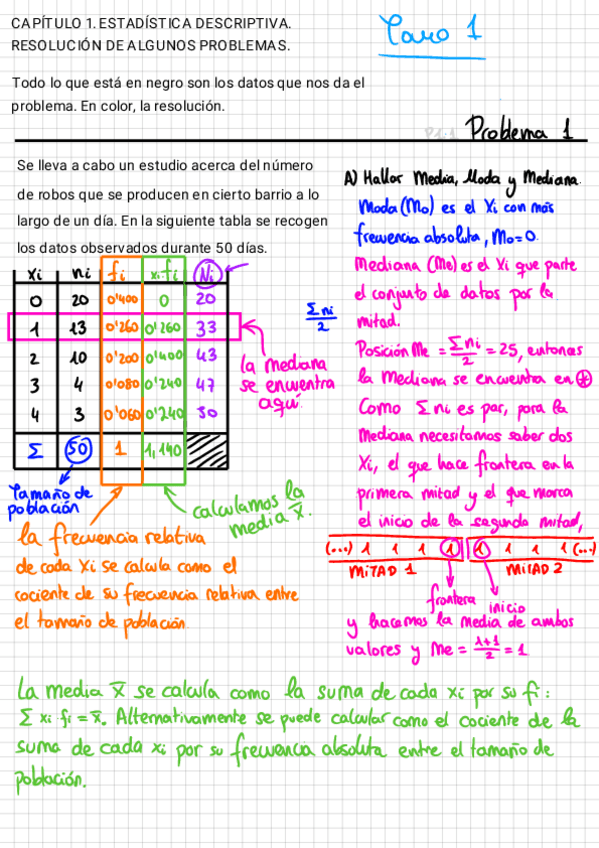 CAPÍTULO 1. ESTADÍSTICA DESCRIPTIVA.
RESOLUCIÓN DE ALGUNOS PROBLEMAS.
Caro 1
Todo lo que está en negro son los datos que nos da el
problema. En color, la resolución.
Problema 1
Se lleva a cabo un estudio acerca del número
de robos que se producen en cierto barrio a lo
largo de un día. En la siguiente tabla se recogen
los datos observados durante 50 días.
xi ni fi xi·fi Ni
0 20 0'400 0 20
1 13 0'260 0'260 33
2 10 0'200 0'400 43
3 4 0'080 0'240 47
4 3 0'060 0'240 50
Σ 50 1 1,140
Σni/2
la mediana
se encuentra
aquí
Tamaño de
población
calculamos la
media x̄.
la frecuencia relativa
de cada Xi se calcula como el
cociente de su frecuencia relativa entre
el tamaño de población.
A) Hallar Media, Moda y Mediana.
Moda (Mo) es el Xi con más
frecuencia absoluta, Mo=0.
Mediana (Me) es el Xi que parte
el conjunto de datos por la
mitad.
Posición Me = Σni/2 = 25, entonces
la Mediana se encuentra en *
Como Σni es par, para la
Mediana necesitamos saber dos
Xi, el que hace frontera en la
primera mitad y el que marca
el inicio de la segunda mitad,
(...) 1 1 1 1 1 1 1 1 (...)
MITAD 1 MITAD 2
frontera inicio
y hacemos la media de ambos
valores y Me = 1+1/2 = 1
La media X̄ se calcula como la suma de cada xi por su fi:
Σ xi·fi = x̄. Alternativamente se puede calcular como el cociente de la
suma de cada xi por su frecuencia absoluta entre el tamaño de
población.